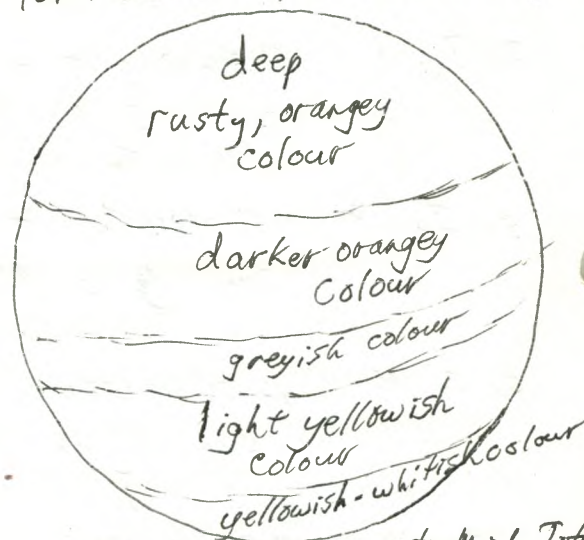 deep
rusty, orangey
colour
darker orangey
Colour
greyish colour
light yellowish
colour
yellowish-whitish colour